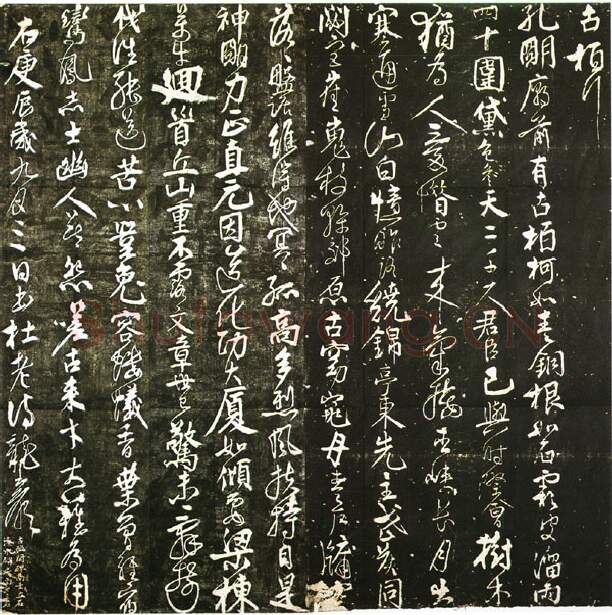 古柏行
孔明廟前有古柏柯如青銅根如石霜皮溜雨
四十圍黛色參天二千尺君臣已與時際會樹木
猶為人愛惜雲來氣接巫峽長月出
寒通雪山白憶昨路繞錦亭東先主武侯同
閟宮崔嵬枝幹郊原古窈窕丹青戶牖空
落落盤踞雖得地冥冥孤高多烈風扶持自是
神明力正直元因造化功大廈如傾要梁棟
萬牛迴首丘山重不露文章世已驚未辭剪
伐誰能送苦心豈免容螻蟻香葉曾經宿
鸞鳳志士幽人莫怨嗟古來才大難為用
右庚辰歲九月三日書杜老詩龍巖
Shufawang.CN